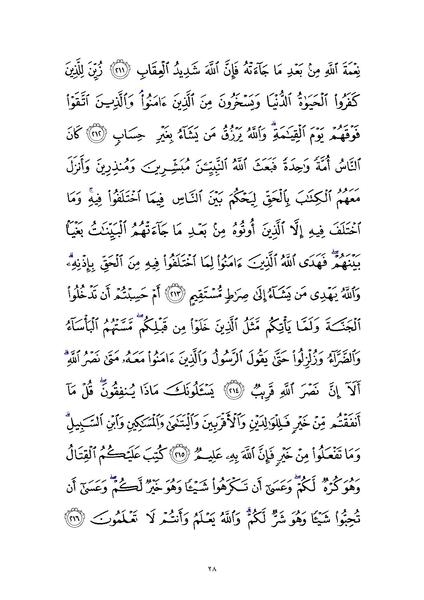 نِعْمَةَ ٱللَّهِ مِنۢ بَعْدِ مَا جَآءَتْهُ فَإِنَّ ٱللَّهَ شَدِيدُ ٱلْعِقَابِ ﴿٢١١﴾ زُيِّنَ لِلَّذِينَ
كَفَرُوا۟ ٱلْحَيَوٰةُ ٱلدُّنْيَا وَيَسْخَرُونَ مِنَ ٱلَّذِينَ ءَامَنُوا۟ ۘ وَٱلَّذِينَ ٱتَّقَوْا۟
فَوْقَهُمْ يَوْمَ ٱلْقِيَـٰمَةِ ۗ وَٱللَّهُ يَرْزُقُ مَن يَشَآءُ بِغَيْرِ حِسَابٍ ﴿٢١٢﴾ كَانَ
ٱلنَّاسُ أُمَّةً وَٰحِدَةً فَبَعَثَ ٱللَّهُ ٱلنَّبِيِّـۧنَ مُبَشِّرِينَ وَمُنذِرِينَ وَأَنزَلَ
مَعَهُمُ ٱلْكِتَـٰبَ بِٱلْحَقِّ لِيَحْكُمَ بَيْنَ ٱلنَّاسِ فِيمَا ٱخْتَلَفُوا۟ فِيهِ ۚ وَمَا
ٱخْتَلَفَ فِيهِ إِلَّا ٱلَّذِينَ أُوتُوهُ مِنۢ بَعْدِ مَا جَآءَتْهُمُ ٱلْبَيِّنَـٰتُ بَغْيًۢا
بَيْنَهُمْ ۖ فَهَدَى ٱللَّهُ ٱلَّذِينَ ءَامَنُوا۟ لِمَا ٱخْتَلَفُوا۟ فِيهِ مِنَ ٱلْحَقِّ بِإِذْنِهِۦ ۗ
وَٱللَّهُ يَهْدِى مَن يَشَآءُ إِلَىٰ صِرَٰطٍ مُّسْتَقِيمٍ ﴿٢١٣﴾ أَمْ حَسِبْتُمْ أَن تَدْخُلُوا۟
ٱلْجَنَّةَ وَلَمَّا يَأْتِكُم مَّثَلُ ٱلَّذِينَ خَلَوْا۟ مِن قَبْلِكُم ۖ مَّسَّتْهُمُ ٱلْبَأْسَآءُ
وَٱلضَّرَّآءُ وَزُلْزِلُوا۟ حَتَّىٰ يَقُولَ ٱلرَّسُولُ وَٱلَّذِينَ ءَامَنُوا۟ مَعَهُۥ مَتَىٰ نَصْرُ ٱللَّهِ ۗ
أَلَآ إِنَّ نَصْرَ ٱللَّهِ قَرِيبٌ ﴿٢١٤﴾ يَسْـَٔلُونَكَ مَاذَا يُنفِقُونَ ۖ قُلْ مَآ
أَنفَقْتُم مِّنْ خَيْرٍ فَلِلْوَٰلِدَيْنِ وَٱلْأَقْرَبِينَ وَٱلْيَتَـٰمَىٰ وَٱلْمَسَـٰكِينِ وَٱبْنِ ٱلسَّبِيلِ ۗ
وَمَا تَفْعَلُوا۟ مِنْ خَيْرٍ فَإِنَّ ٱللَّهَ بِهِۦ عَلِيمٌ ﴿٢١٥﴾ كُتِبَ عَلَيْكُمُ ٱلْقِتَالُ
وَهُوَ كُرْهٌ لَّكُمْ ۖ وَعَسَىٰٓ أَن تَكْرَهُوا۟ شَيْـًٔا وَهُوَ خَيْرٌ لَّكُمْ ۖ وَعَسَىٰٓ أَن
تُحِبُّوا۟ شَيْـًٔا وَهُوَ شَرٌّ لَّكُمْ ۗ وَٱللَّهُ يَعْلَمُ وَأَنتُمْ لَا تَعْلَمُونَ ﴿٢١٦﴾
٢٨